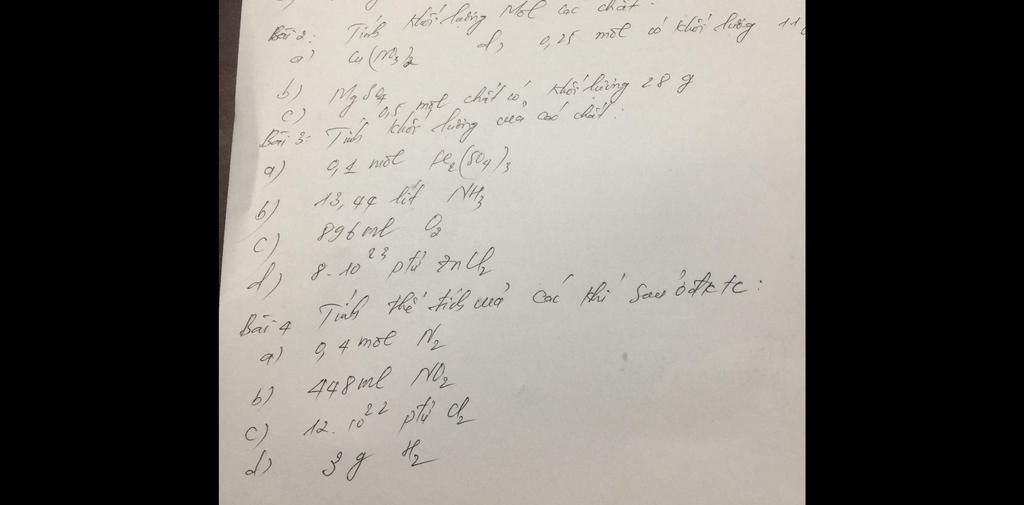 Bài 2: Tính khối lượng Mol các chất.
a) Cu(NO3)2 d, 0,25 mol có khối lượng 11
b) MgSO4
c) 0,5 mol chất có khối lượng 28 g
Bài 3: Tính khối lượng của các chất:
a) 0,1 mol Fe2(SO4)3
b) 13,44 lít NH3
c) 896ml O2
d) 8.10^23 ptử ZnCl2
Bài 4 Tính thể tích của các khí sau ở đktc:
a) 0,4 mol N2
b) 448ml NO2
c) 12.10^22 ptử Cl2
d) 3g H2